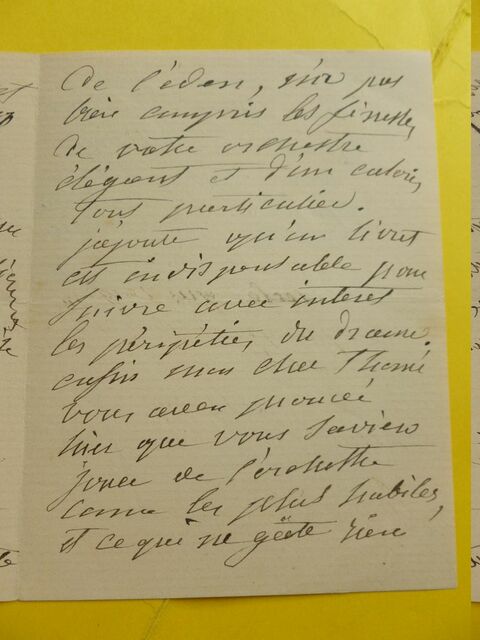 De l'éden, n'ai pas
bien compris les finesses
de votre orchestre
élégant et d'un coloris
tout particulier.
j'ajoute qu'un livret
est indispensable pour
suivre avec intérêt
les péripéties du drame.
enfin mon cher Thomé
vous avez prouvé
hier que vous saviez
jouer de l'orchestre
comme les plus habiles,
et ce qui ne gâte rien